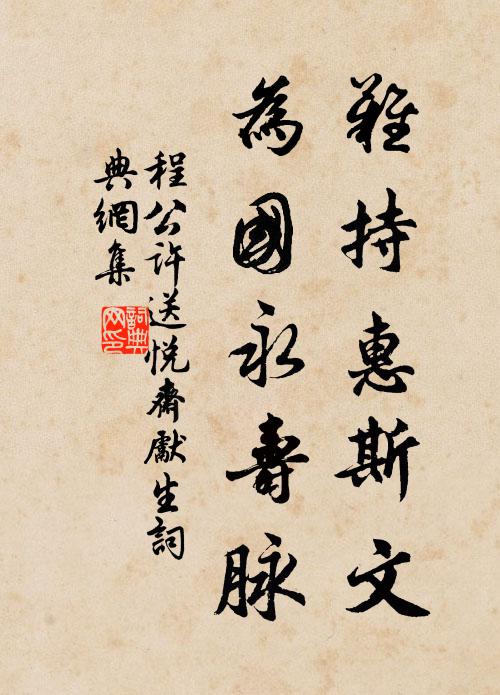 難持惠斯文
為國永壽脉
程公許送悅齋獻生詞
典網集
詞典
网印